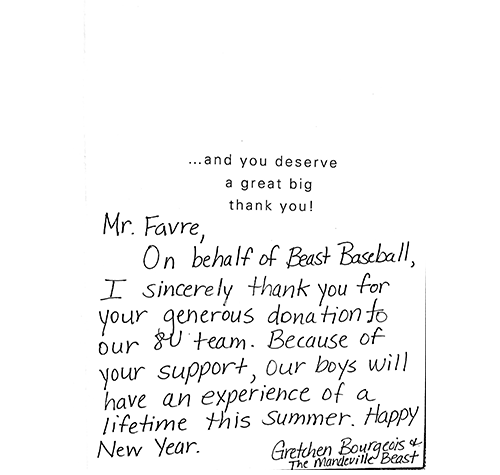 ...and you deserve
a great big
thank you!
Mr. Favre,
On behalf of Beast Baseball,
I sincerely thank you for
your generous donation to
our 8U team. Because of
your support, our boys will
have an experience of a
lifetime this summer. Happy
New Year. Gretchen Bourgeois &
The Mandeville Beast